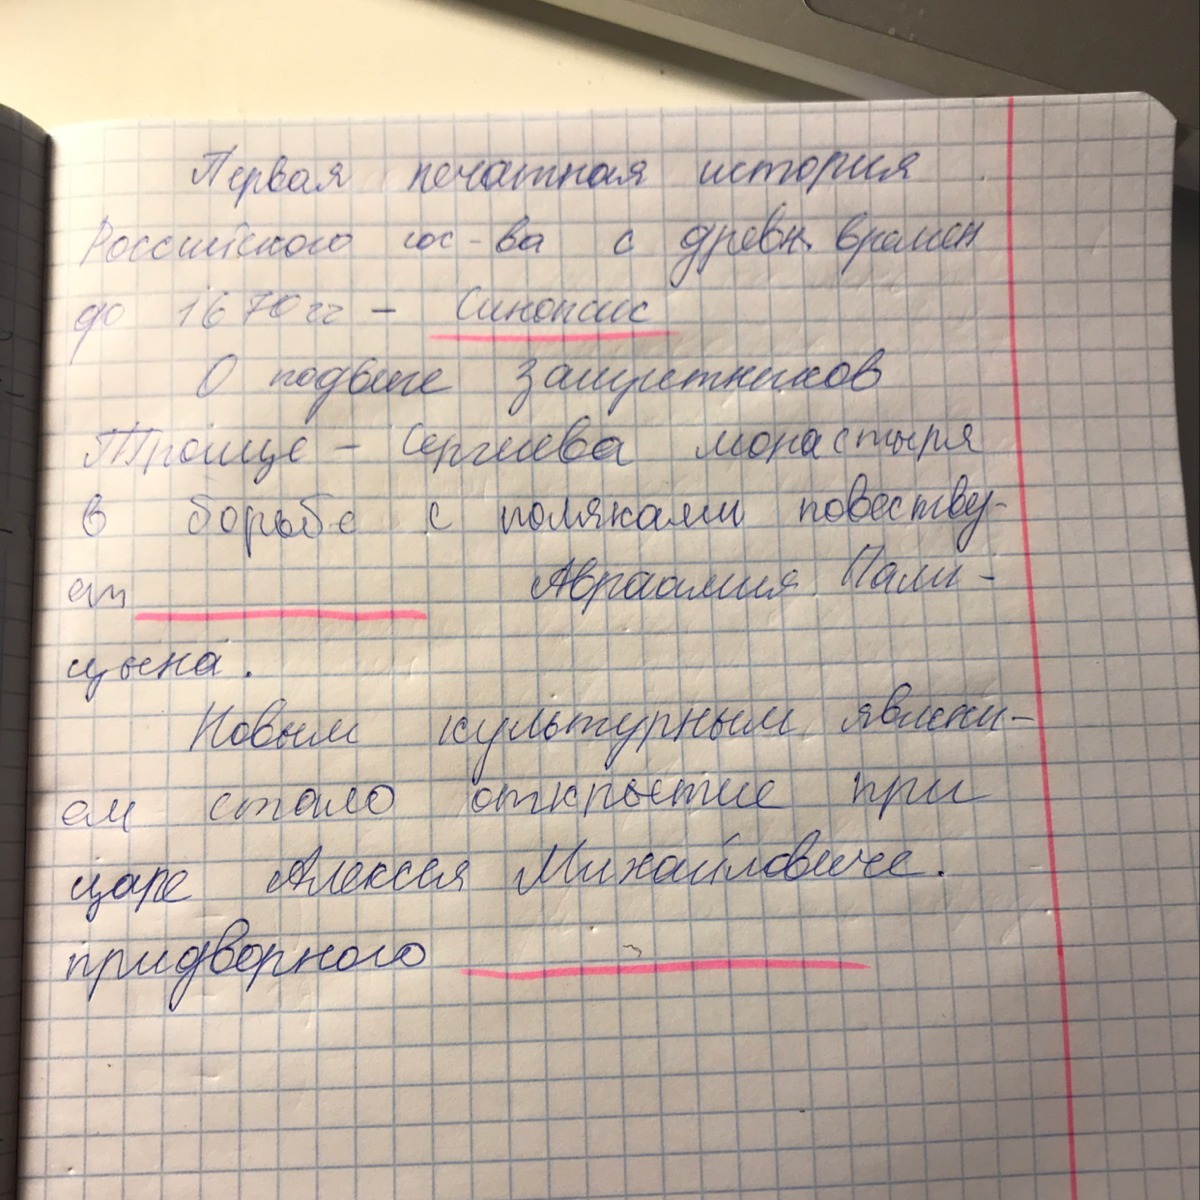 Первая печатная история
Российского гос-ва с древн. времен
до 1670 гг – Синопсис
О подвиге защитников
Троице – Сергиева монастыря
в борьбе с поляками повеству-
ет Авраамия Пали-
цына.
Новым культурным явлени-
ем стало открытие при
царе Алексея Михайловиче.
придворного